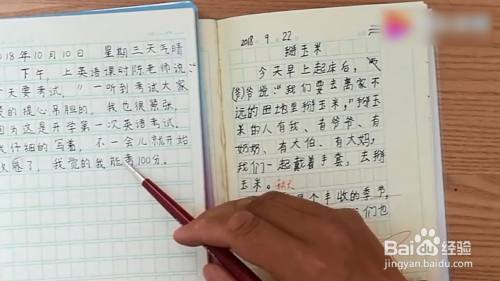 018年10月10日 星期三天气晴
下午，上英语课时陈老师说
天要考试，”一听到考试大家
的提心吊胆的，我也很紧张，
有这是开学第一次英语考试。
仔细的写着，不一会儿就开始
了，我觉的我能考100分。
2018.9.22
掰玉米
今天早上起床后，
爷说：“我们要去离家不
远的田地里掰玉米，”掰玉
米的人有我、有爷爷、有
奶奶、有大伯、有大妈，
我们一起戴着手套，去掰
玉米。秋天
是个丰收的季节，
们也
Baidu经验
jingyan.baidu.com